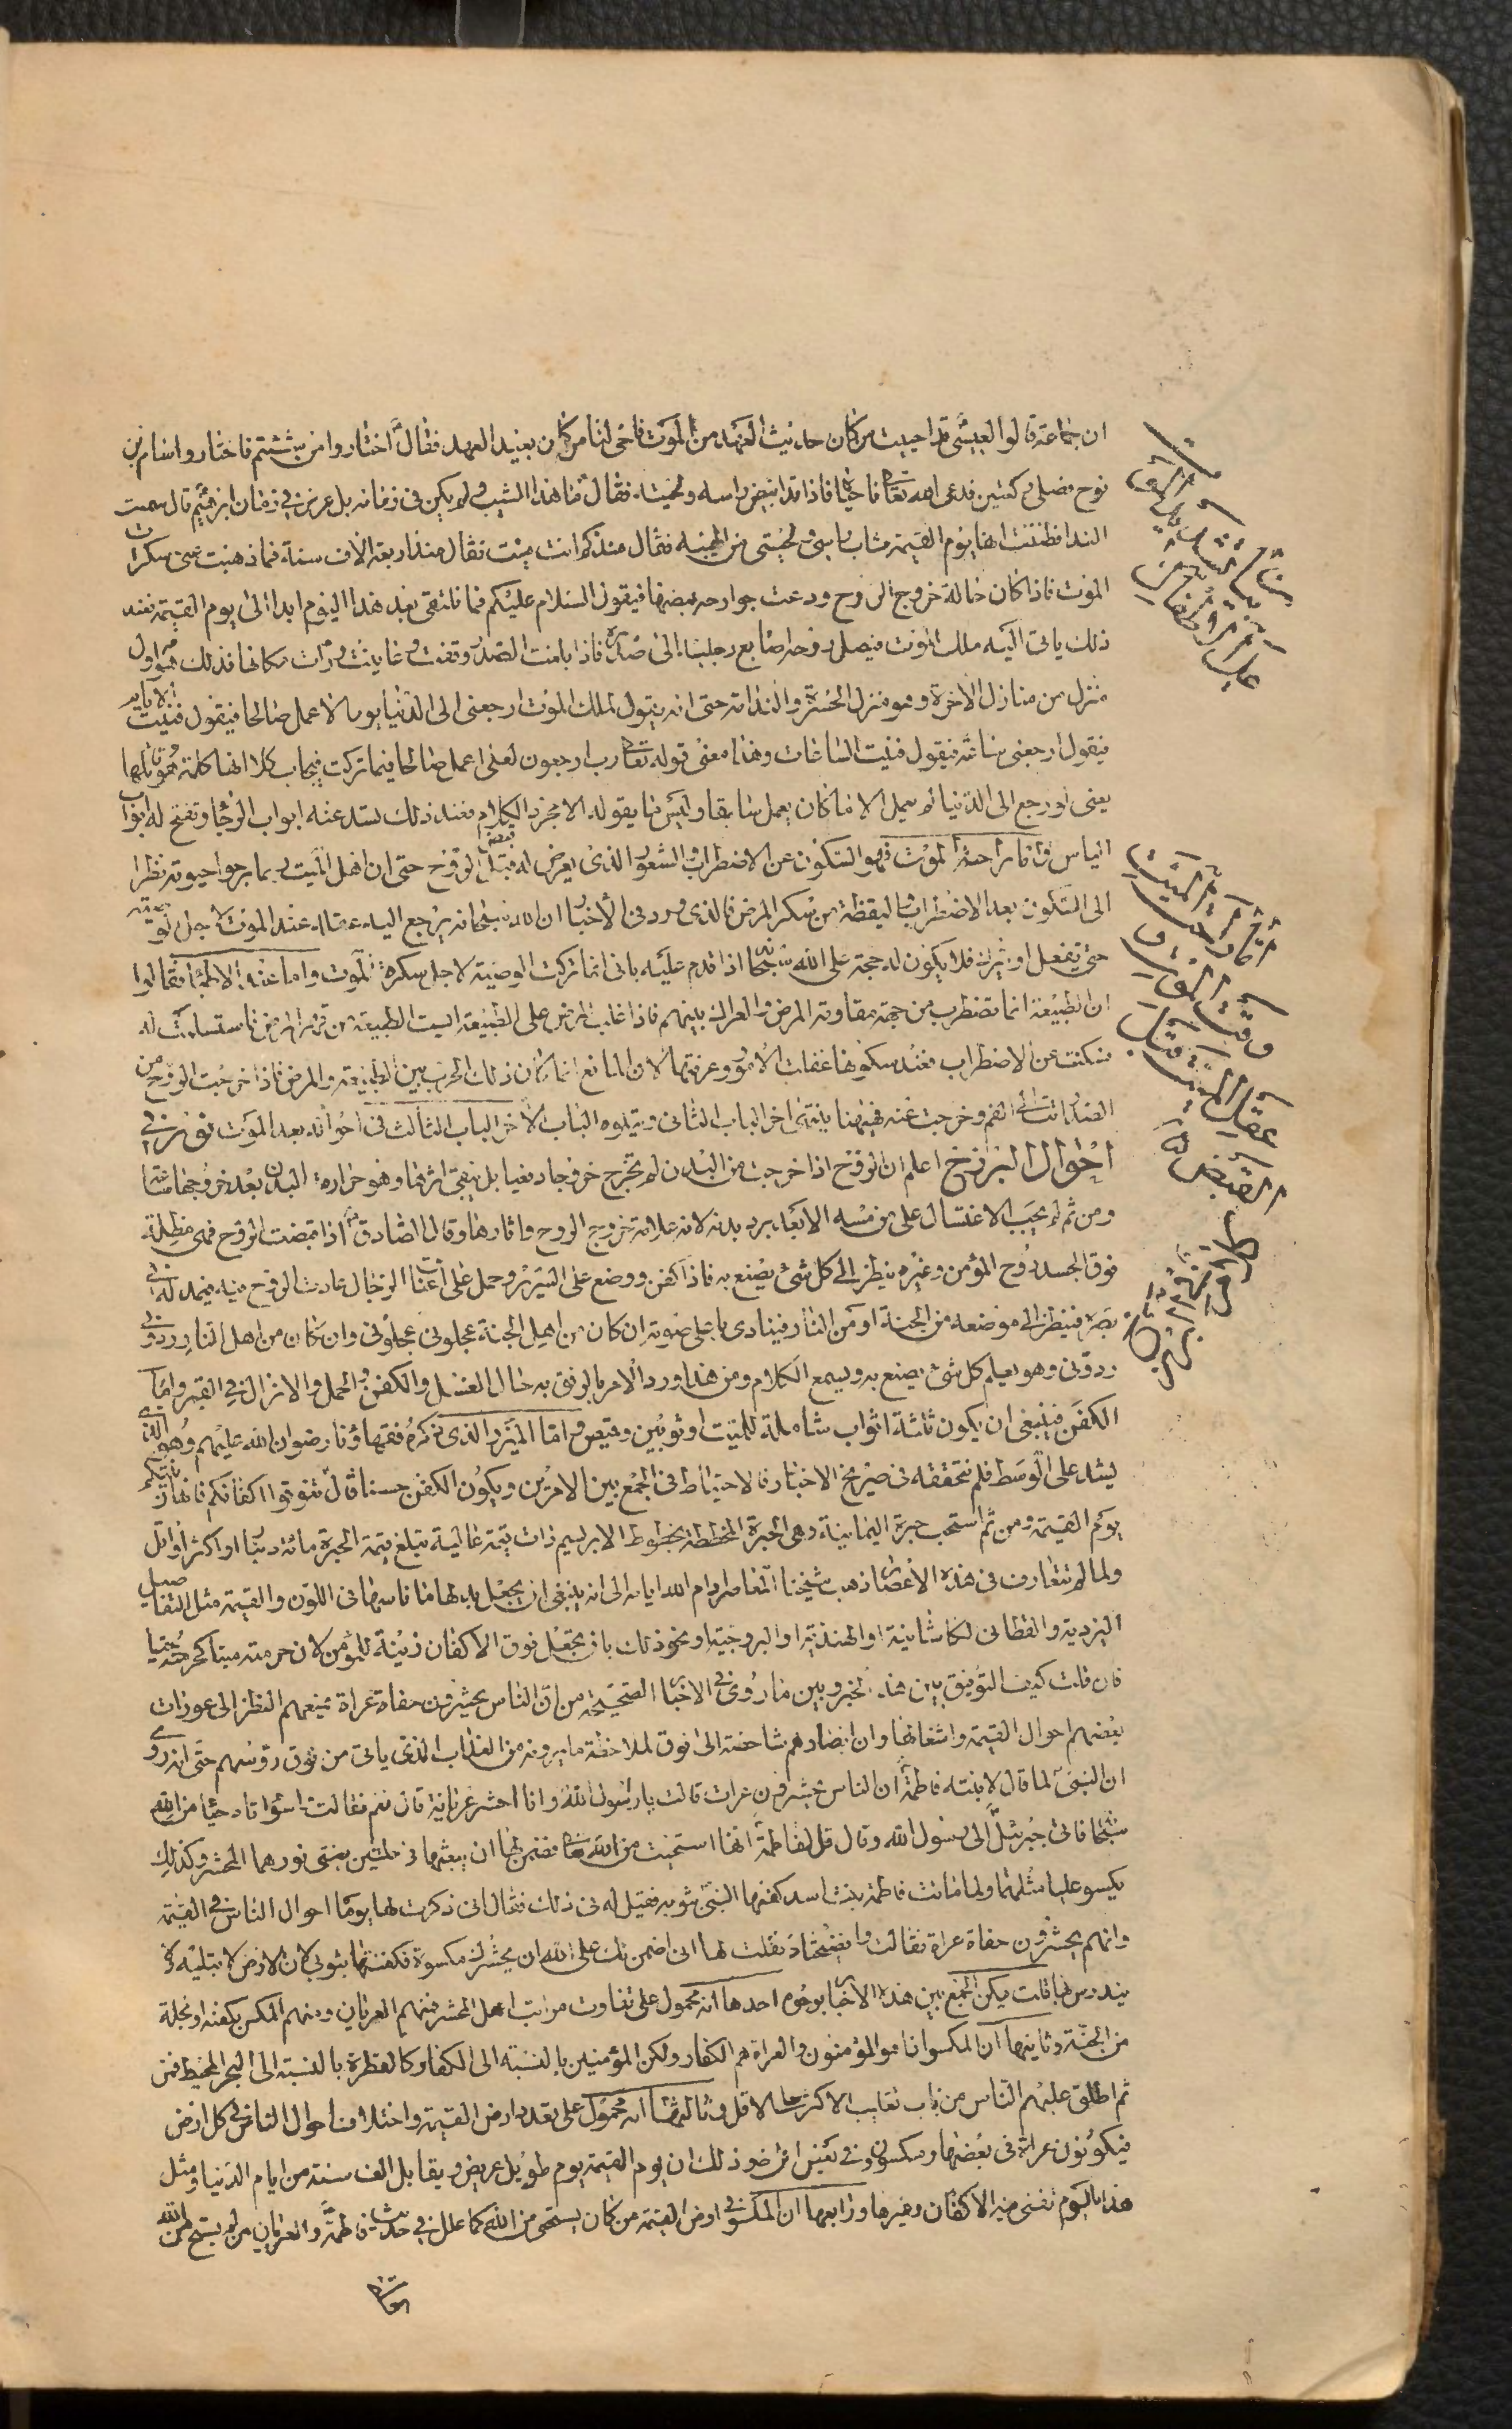 ان جماعة قالوا لعيسى قد احييت من كان حديث العهد من الموت فاحى لنا من كان بعيد العهد فقال اختاروا من شئتم فاختاروا سام بن
نوح فصلى ركعتين فدعى الله تعالى فاحياه فاذا قد ابيض راسه ولحيته فقال ما هذا الشيب ولم يكن فى زمانه بل عرض فى زمان ابرهيم قال سمعت
الندا فظننت انها يوم القيمة فشاب راسى ولحيتى من الهيبة فقال منذكم انت ميت فقال منذ اربعة الاف سنة فما ذهبت عنى سكرات
الموت فاذا كان حالة خروج الروح ودعت جوارحه بعضها فيقول السلام عليكم فما نلتقى بعد هذا اليوم ابدا الى يوم القيمة فعند
ذلك ياتى اليه ملك الموت فيصل روحه اصابع رجليه الى صدره فاذا بلغت الصدر وقفت وعاينت ورات مكانها فذلك هو اول
منزل من منازل الاخرة وهو منزل الحسرة والندامة حتى انه يقول لملك الموت ارجعنى الى الدنيا يوما لاعمل صالحا فيقول فنيت الايام
فيقول ارجعنى ساعة فيقول فنيت الساعات وهذا معنى قوله تعالى رب ارجعون لعلى اعمل صالحا فيما تركت فيجاب كلا انها كلمة هو قائلها
يعنى لو رجع الى الدنيا لم يعمل الا ما كان يعمل سابقا وليس ما يقوله الا مجرد الكلام فعند ذلك تسد عنه ابواب الرجا وتفتح له ابواب
الياس واما راحة الموت فهو السكون عن الاضطراب والشعور الذى يعرض له قبل قبض الروح حتى ان اهل الميت ربما يرجوا حيوته نظرا
الى السكون بعد الاضطراب واليقظة من سكر المرض فالذى ورد فى الاخبار ان الله سبحانه يرجع اليه عقله عند الموت لاجل الوصية
حتى يفعل او يترك فلا يكون له حجة على الله سبحانه اذا قدم عليه بانى انما تركت الوصية لاجل سكرة الموت واما عند الاطبا فقالوا
ان الطبيعة انما تضطرب من جهة مقاومة المرض والعراك بينهم فاذا غلب المرض على الطبيعة ايست الطبيعة من قهر المرض فاستسلمت له
فسكنت عن الاضطراب فعند سكونها عقلت الامور وعرفتها لان المانع انما كان ذلك الحرب بين الطبيعة والمرض فاذا خرجت الروح من
الصدر اتت الى الفم وخرجت عنه فههنا ينتهى اخر الباب الثانى ويتلوه الباب الاخر الباب الثالث فى احواله بعد الموت نور فى
احوال البرزخ اعلم ان الروح اذا خرجت من البدن لم تخرج خروجا دفعيا بل يبقى اثرها وهو حرارة البدن بعد خروجها منه
ومن ثم لم يجب الاغتسال على من مسه الا بعد برد بدنه لانه علامة خروج الروح واثارها وقال الصادق ع اذا قبضت الروح فهى مظلة
فوق الجسد روح المؤمن وغيره ينظر الى كل شئ يصنع به فاذا كفن ووضع على السرير وحمل على اعناق الرجال عادت الروح فيه فيمد له فى
بصره فينظر الى موضعه من الجنة او من النار فينادى باعلى صوته ان كان من اهل الجنة عجلونى عجلونى وان كان من اهل النار ردونى
ردونى وهو يعلم كل شئ يصنع به ويسمع الكلام ومن هذا ورد الامر بالرفق به حال الغسل والكفن والحمل والانزال فى القبر واما
الكفن فينبغى ان يكون ثلثة اثواب شاملة للميت او ثوبين وقميص واما الميزر الذى ذكره فقهاؤنا رضوان الله عليهم وهو الذى
يشد على الوسط فلم نتحققه فى صريح الاخبار فالاحتياط فى الجمع بين الامرين ويكون الكفن حسنا قال تنوقوا اكفانكم فانها زينتكم
يوم القيمة ومن ثم استحب حبرة اليمانية وهى الحبرة المخططة بخطوط الابريسم ذات قيمة غالية تبلغ قيمة الحبرة مائة دينار او اكثر او اقل
ولما لم تتعارف فى هذه الاعصار ذهب شيخنا المعاصر ادام الله ايامه الى انه ينبغى ان يجعل بدلها ما ناسبها فى اللون والقيمة مثل التفاصيل
اليزدية والقطانى الكاشانية او الهندية او البروجية ونحو ذلك بان يجعل فوق الاكفان زينة للمؤمن لان حرمته ميتا كحرمته حيا
فان قلت كيف التوفيق بين هذا الخبر وبين ما روى فى الاخبار الصحيحة من ان الناس يحشرون حفاة عراة يمنعهم النظر الى عورات
بعضهم احوال القيمة واشغالها وان ابصارهم شاخصة الى فوق لملاحظة ما يرونه من العذاب الذى ياتى من فوق رؤسهم حتى انه روى
ان النبى لما قال لابنته فاطمة ان الناس يحشرون عراة قالت يا رسول الله وانا احشر عريانة قال نعم فقالت واسوأتاه حياء من الله
سبحانه فاتى جبرئيل الى رسول الله وقال قل لفاطمة انها استحيت من الله تعالى فضمن لها ان يبعثها فى حلتين يغشى نورهما المحشر وكذلك
يكسو عليا مثلهما ولما ماتت فاطمة بنت اسد كفنها النبى بثوبه فقيل له فى ذلك فقال انى ذكرت لها يوما احوال الناس فى القيمة
وانهم يحشرون حفاة عراة فقالت وافضيحتاه فقلت لها انى اضمن لك على الله ان يحشرك مكسوة فكفنتها بثوبى لان الارض لا تبليه ولا
يندرس فيها قلت يمكن الجمع بين هذه الاخبار بوجوه احدها انه محمول على تفاوت مراتب اهل المحشر فمنهم العريان ومنهم المكسى بكفنه او بحلة
من الجنة وثانيها ان المكسو انما هو المؤمنون والعراة هم الكفار ولكن المؤمنين بالنسبة الى الكفار كالقطرة بالنسبة الى البحر المحيط فمن
ثم اطلق عليهم الناس من باب تغليب الاكثر على الاقل وثالثها انه محمول على تعدد ارض القيمة واختلاف احوال الناس فى كل ارض
فيكونون عراة فى بعضها ومكسون فى بعض اخر وذلك ان يوم القيمة يوم طويل عريض يقابل الف سنة من ايام الدنيا ومثل
هذا اليوم تفنى فيه الاكفان وغيرها ورابعها ان المكسو فى ارض القيمة من كان يستحى من الله كما علل فى حديث فاطمة والعريان من لم يستحى من الله
اما راحة الميت
وقت الموت و
عقل الميت قبل
القبض له